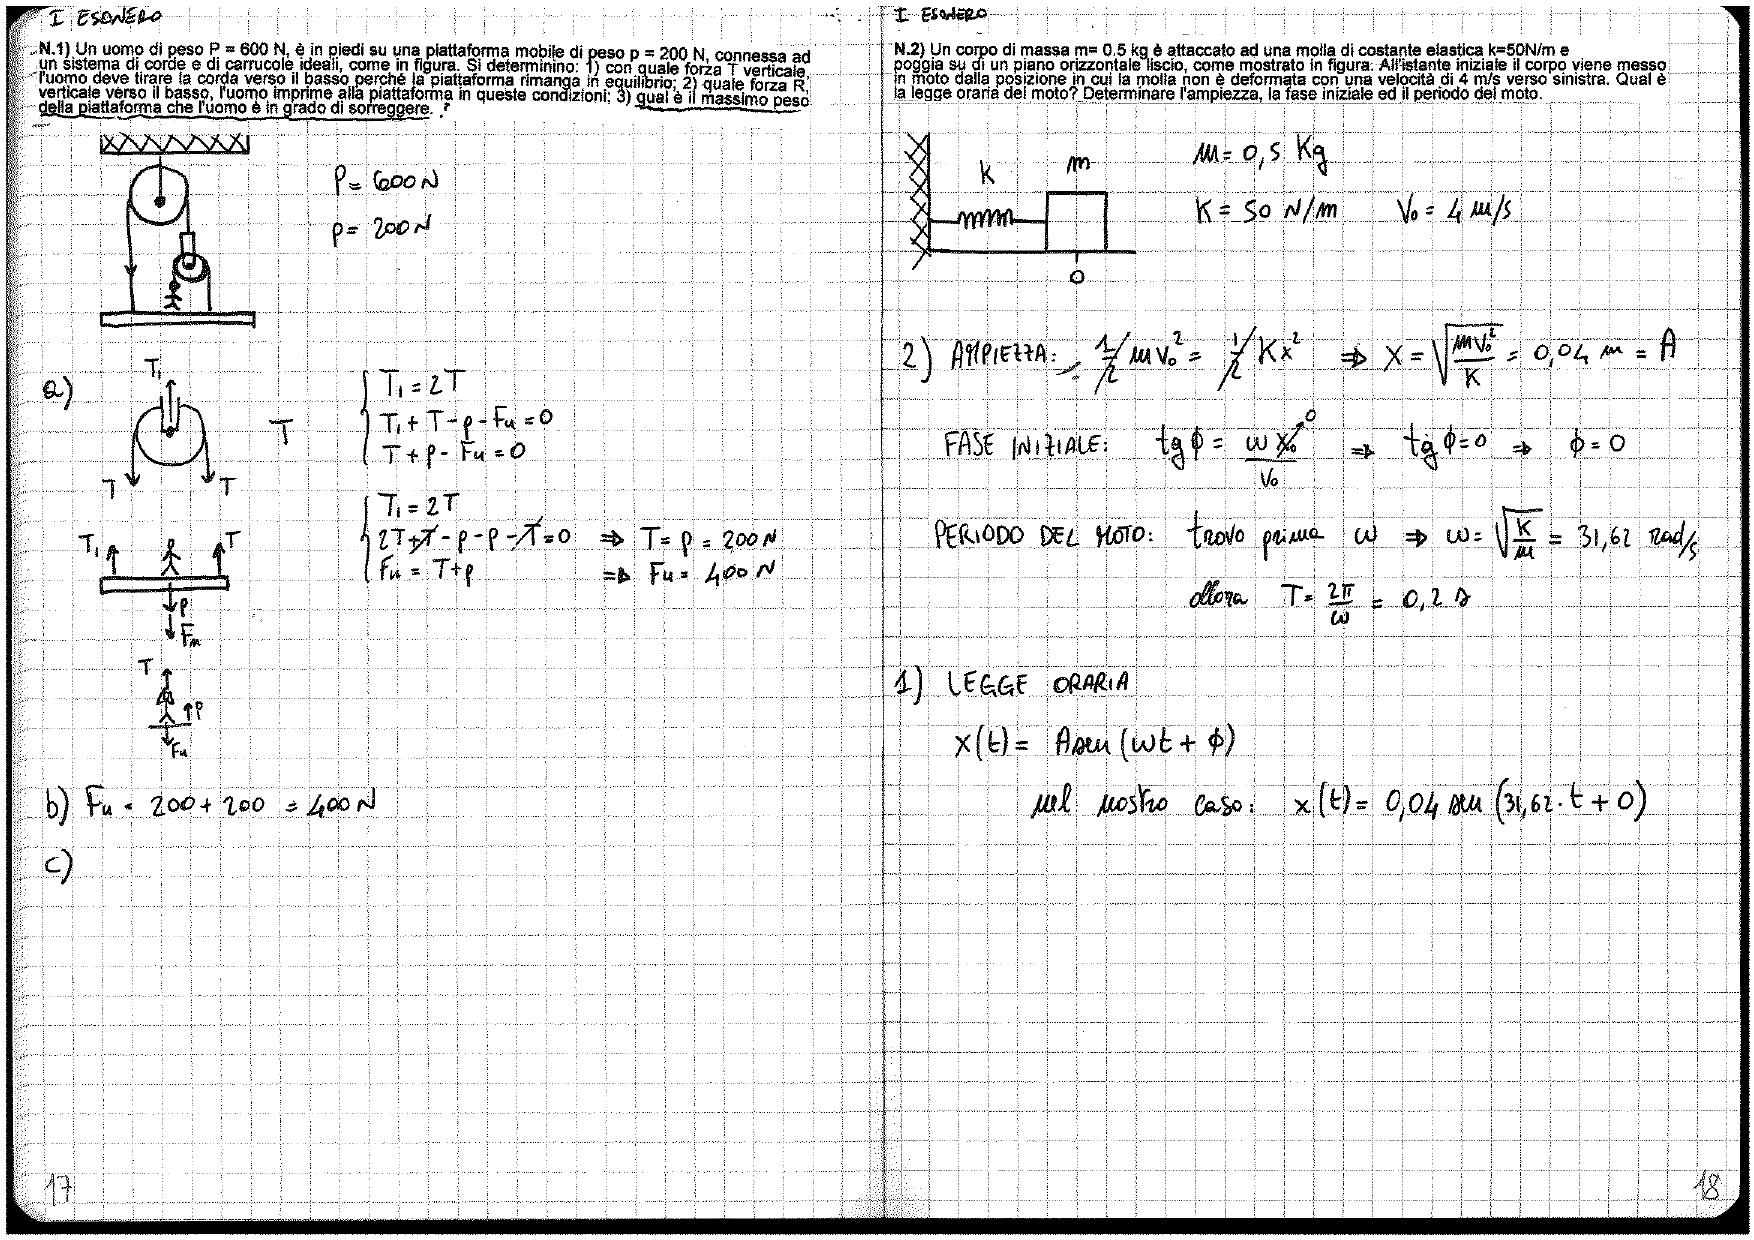 I ESONERO
N.1) Un uomo di peso P = 600 N, è in piedi su una piattaforma mobile di peso p = 200 N, connessa ad
un sistema di corde e di carrucole ideali, come in figura. Si determinino: 1) con quale forza T verticale,
l'uomo deve tirare la corda verso il basso perché la piattaforma rimanga in equilibrio; 2) quale forza R,
verticale verso il basso, l'uomo imprime alla piattaforma in queste condizioni; 3) qual è il massimo peso
della piattaforma che l'uomo è in grado di sorreggere. ?
P = 600 N
p = 200 N
a)
T₁
T
T
T
T₁ = 2T
T₁ + T - p - Fu = 0
T + p - Fu = 0
T₁
P
T
P
Fu
T₁ = 2T
2T + T - p - p - T = 0 ⇒ T = p = 200 N
Fu = T + p ⇒ Fu = 400 N
T
P
Fu
b) Fu = 200 + 200 = 400 N
c)
17
I ESONERO
N.2) Un corpo di massa m= 0.5 kg è attaccato ad una molla di costante elastica k=50N/m e
poggia su di un piano orizzontale liscio, come mostrato in figura. All'istante iniziale il corpo viene messo
in moto dalla posizione in cui la molla non è deformata con una velocità di 4 m/s verso sinistra. Qual è
la legge oraria del moto? Determinare l'ampiezza, la fase iniziale ed il periodo del moto.
k
m
O
m = 0,5 Kg
K = 50 N/m V₀ = 4 m/s
2) AMPIEZZA: 1/2 m v₀² = 1/2 K x² ⇒ X = √(mv₀²/K) = 0,04 m = A
FASE INIZIALE: tgϕ = ω x₀/V₀ 0 ⇒ tgϕ = 0 ⇒ ϕ = 0
PERIODO DEL MOTO: trovo prima ω ⇒ ω = √(K/m) = 31,62 rad/s
allora T = 2π/ω = 0,2 s
1) LEGGE ORARIA
x(t) = A sen (ωt + ϕ)
nel nostro caso: x(t) = 0,04 sen (31,62 · t + 0)
18